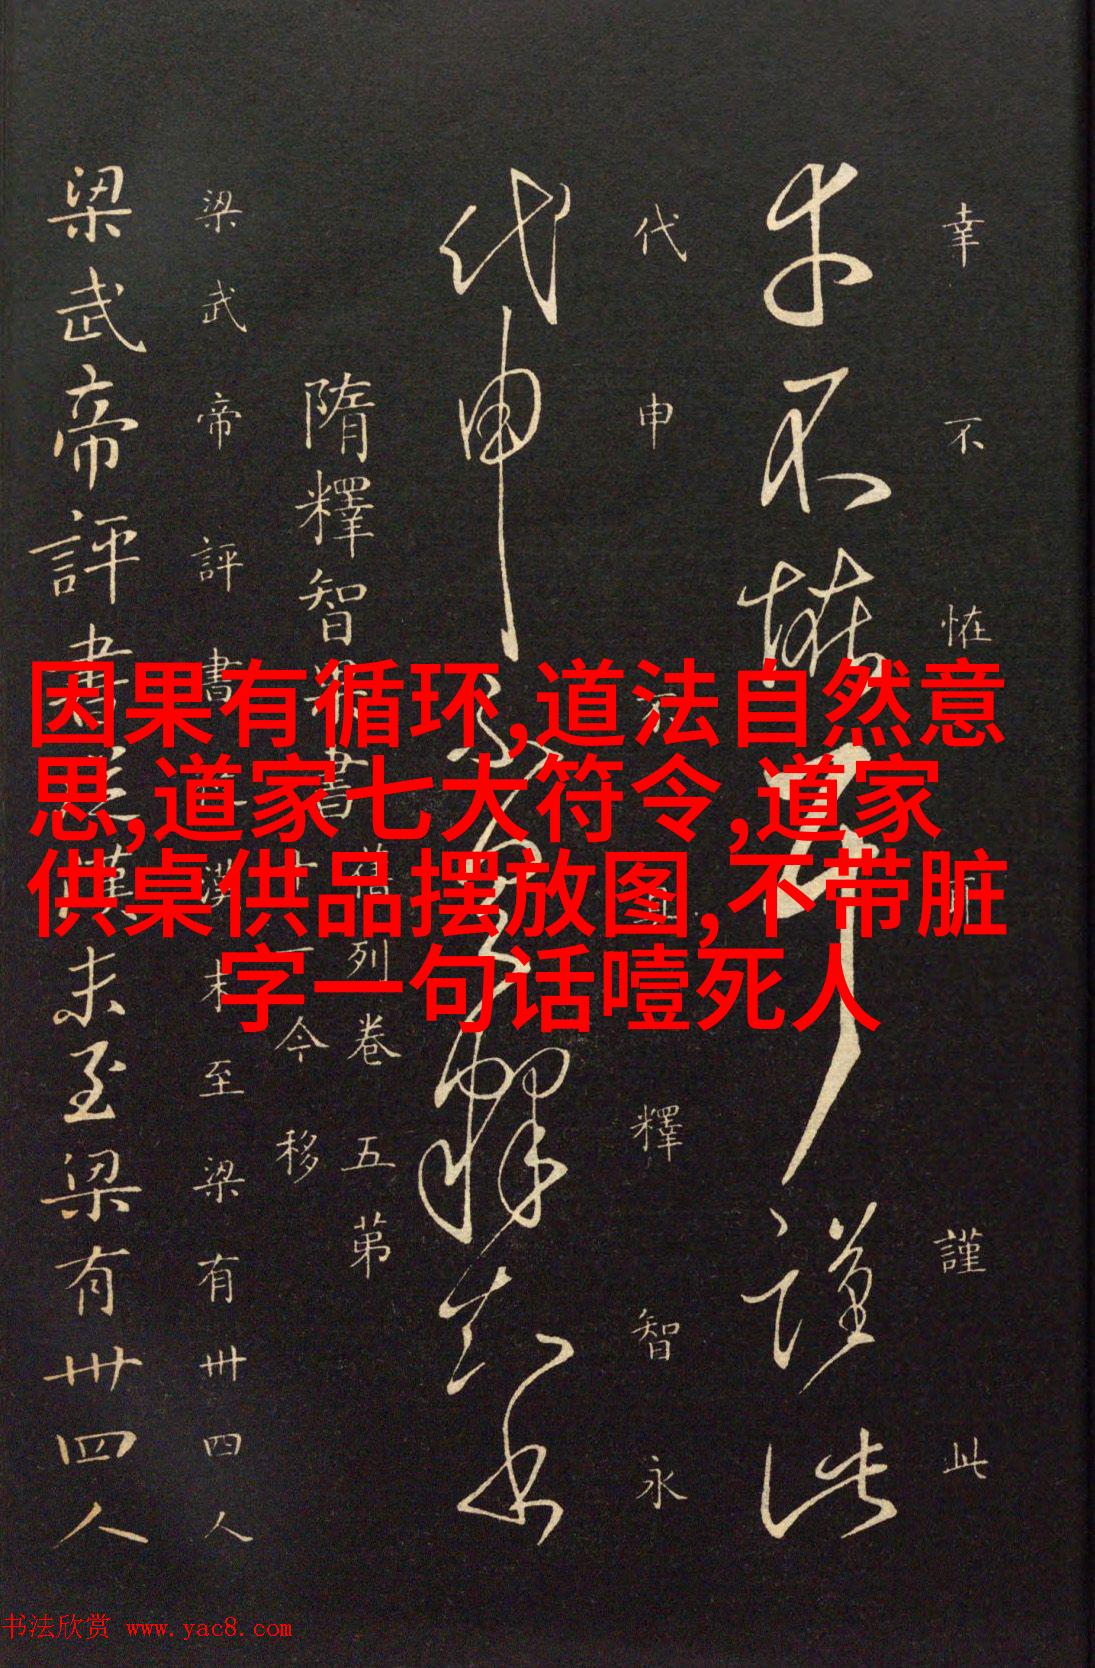 幸不恠耳謹此
代申不具釋智永
隋釋智果書
僧列卷五第
十一今移
梁武帝評書從漢末至梁有卌四人
梁武帝評書從漢末至梁有卌四人
因果有循环,道法自然意
思,道家七大符令,道家
供桌供品摆放图,不带脏
字一句话噎死人
书法欣赏 www.yac8.com